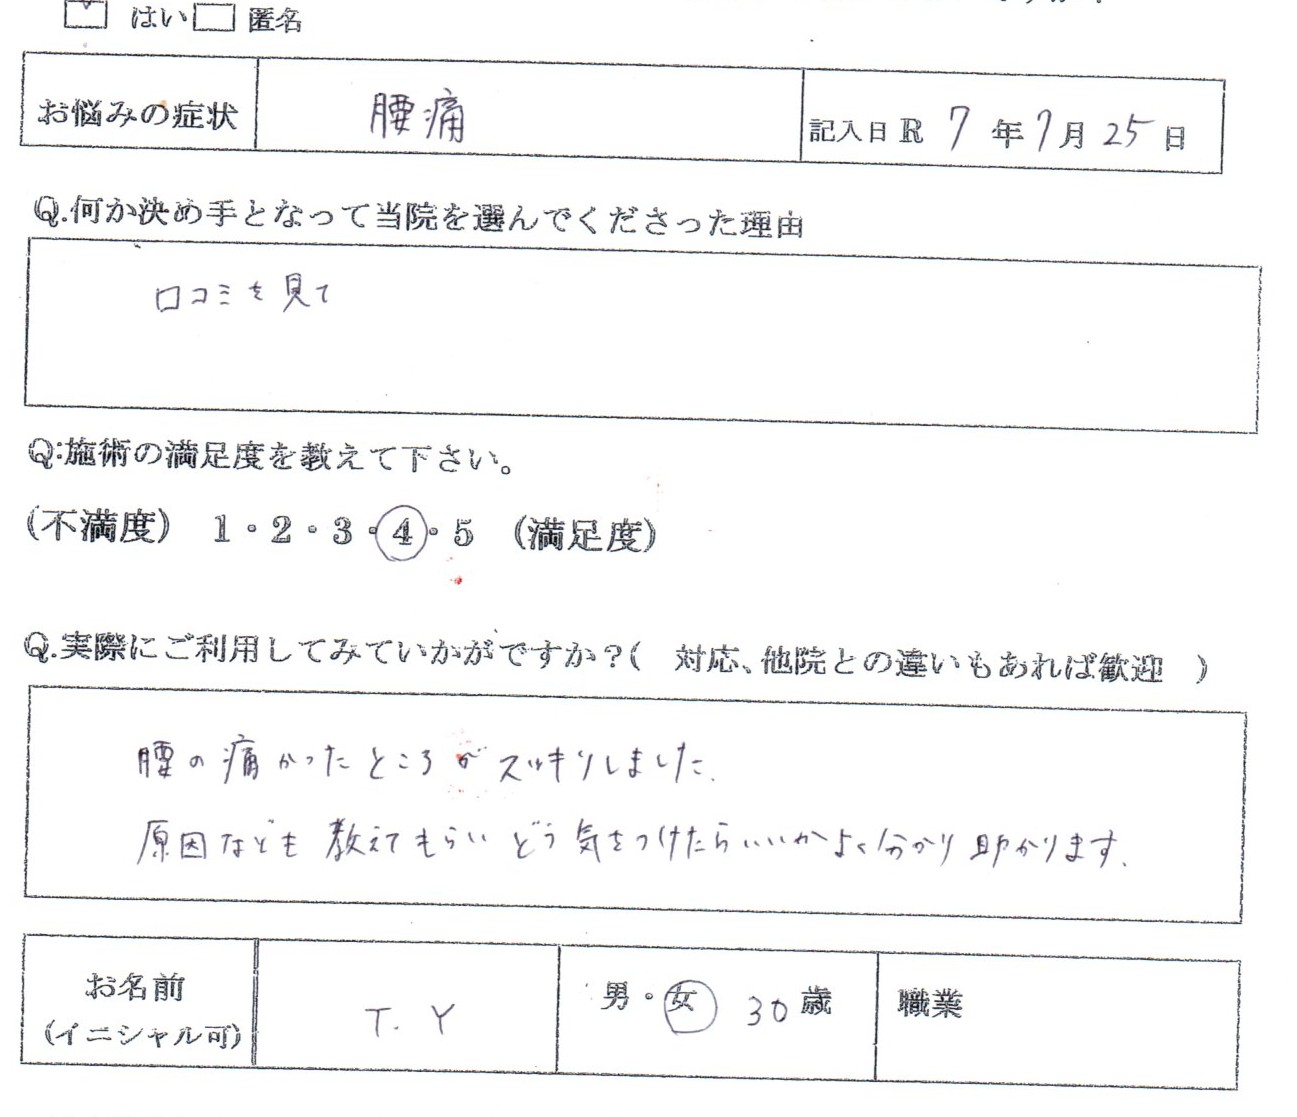 はい 匿名
お悩みの症状 腰痛 記入日 R 7 年 7 月 25 日
Q.何か決め手となって当院を選んでくださった理由
口コミを見て
Q:施術の満足度を教えて下さい。
(不満度) 1・2・3・4・5 (満足度)
Q.実際にご利用してみていかがですか?( 対応、他院との違いもあれば歓迎 )
腰の痛かったところがスッキリしました.
原因なども教えてもらいどう気をつけたらいいかよく分かり助かります.
お名前 T. Y 男・女 30 歳 職業
(イニシャル可)